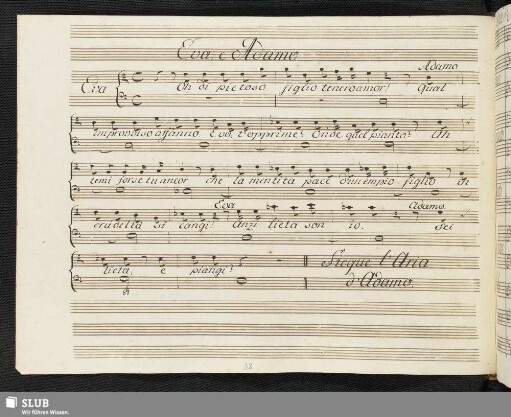 Eva, e Adamo
Adamo
Eva Oh di pietoso figlio tenero amor! Qual
improviso affanno Eva, t'opprime? Onde quel pianto? Ah
temi forse tu ancor che la mentita pace d'un empio figlio in
Eva Adamo
crudeltà si cangi? Anzi lieta son io. Sei
lieta, e piangi? Siegue l'Aria
d'Adamo.
38
SLUB
Wir führen Wissen.